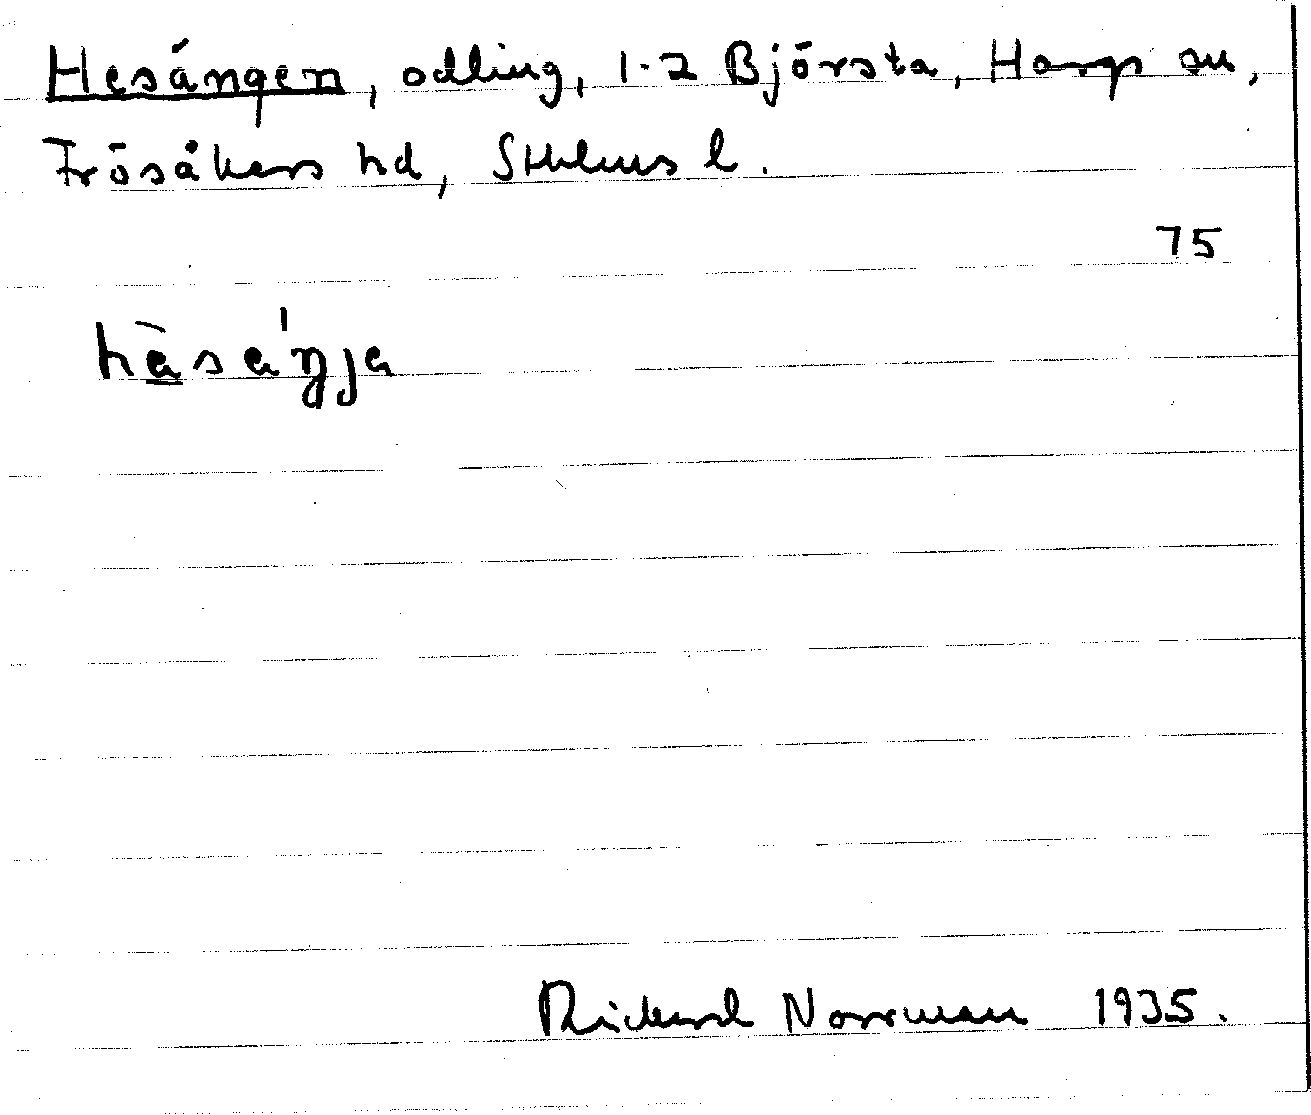 Hesängen, odling, 1-2 Björsta, Hargs sn,
Frösåkers hd, Sthlms l.
75
hèsa̍ŋja
Rickard Norrman 1935.